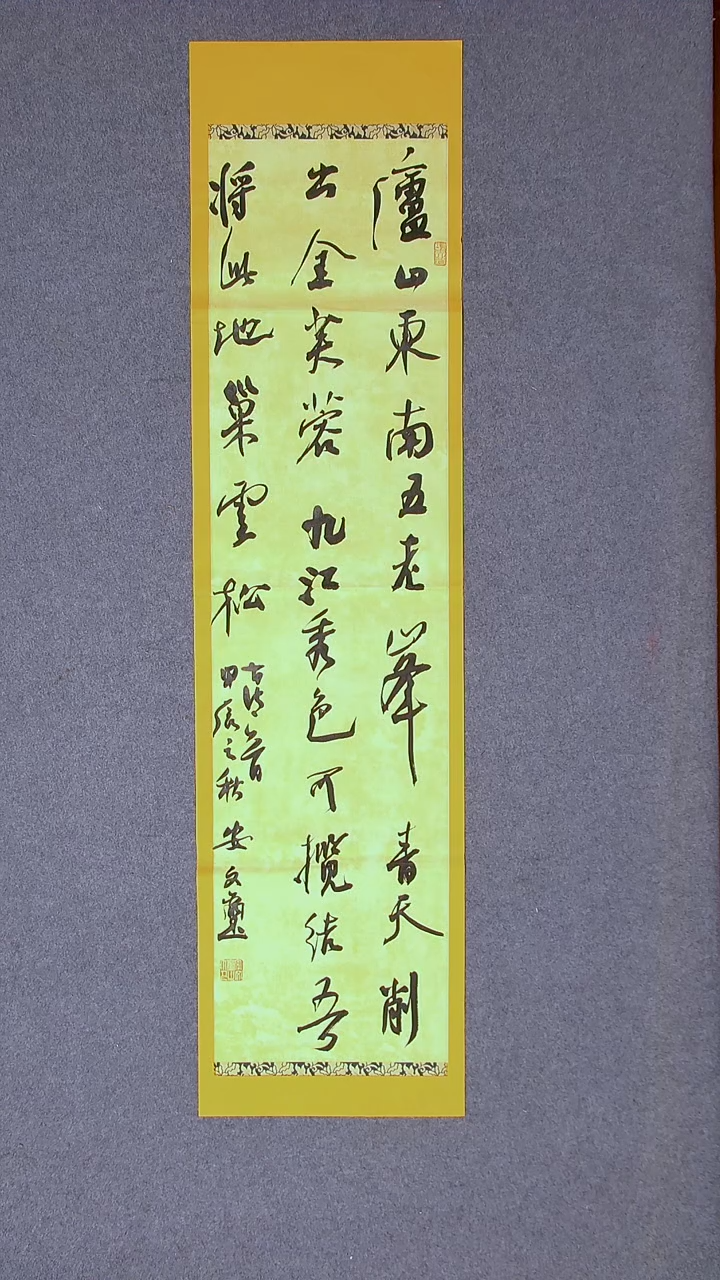 廬山東南五老峯青天削
出金芙蓉九江秀色可攬結吾
将此地巢雲松
古诗一首
甲辰之秋安文